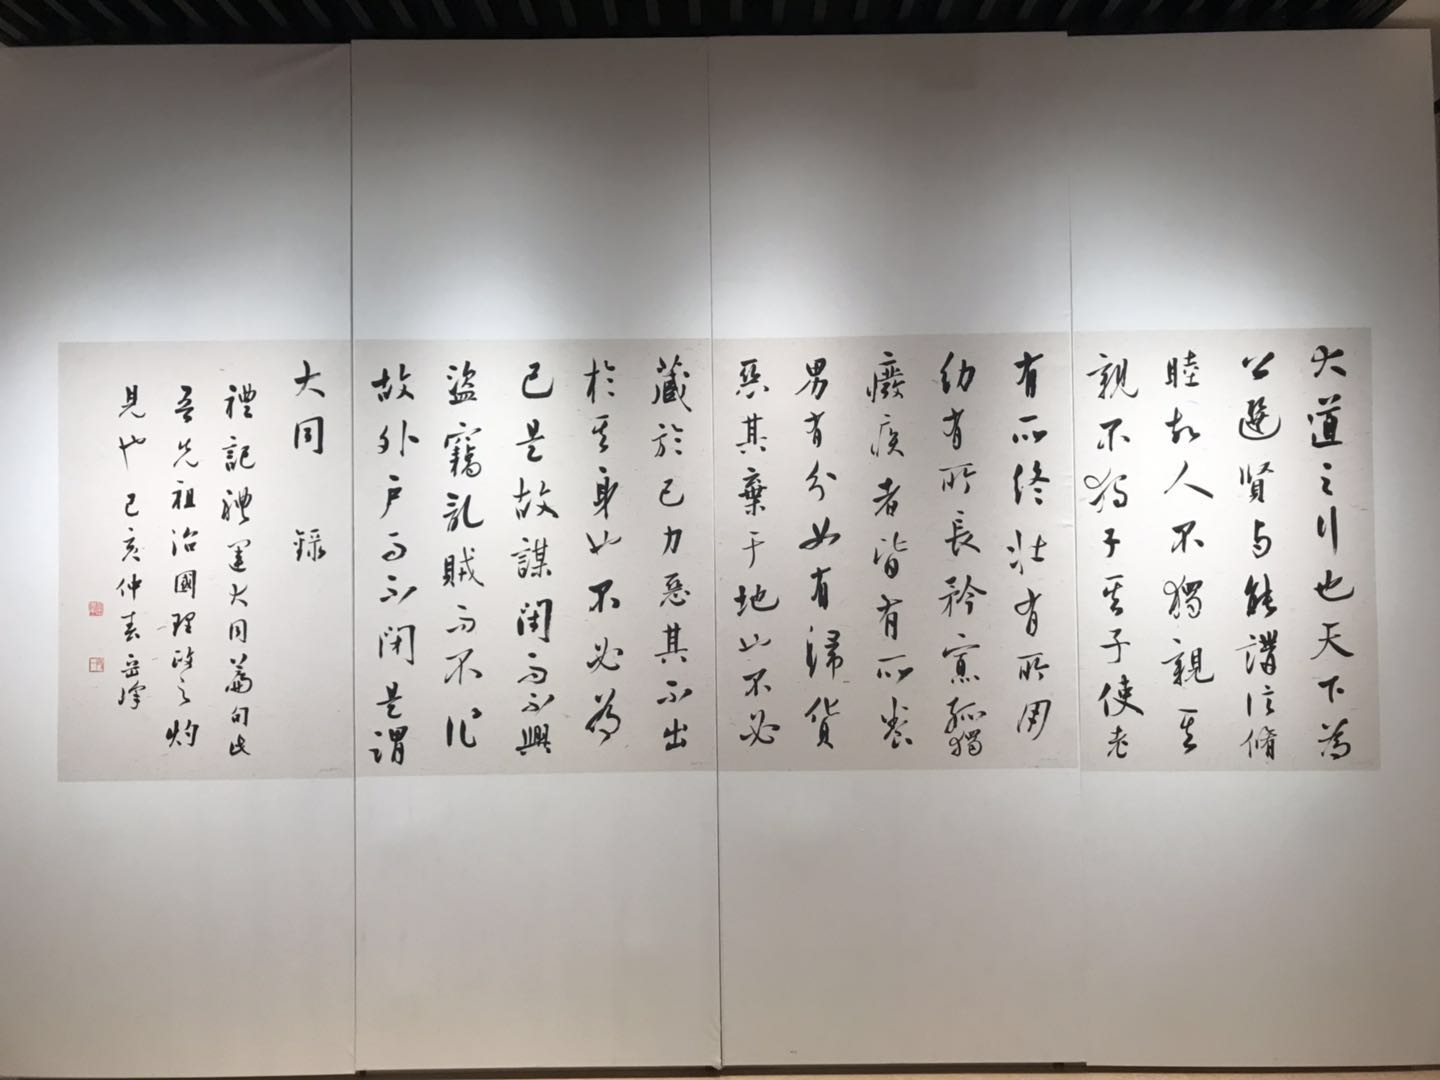 大道之行也天下為
公選賢與能講信脩
睦故人不獨親其
親不獨子其子使老
有所終壯有所用
幼有所長矜寡孤獨
廢疾者皆有所養
男有分女有歸貨
惡其棄于地也不必
藏於己力惡其不出
於其身也不必為
己是故謀閉而不興
盜竊亂賊而不作
故外戶而不閉是謂
大同 錄
禮記禮運大同篇句此
吾先祖治國理政之灼
見也 己亥仲春岳峰